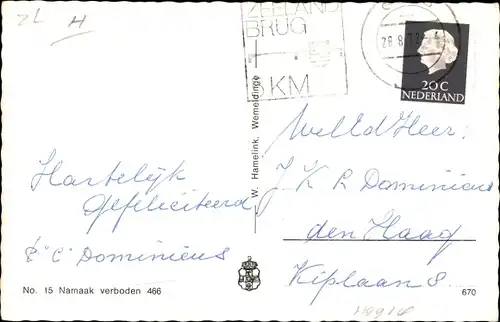 ZL H
ZEELAND
BRUG
KM
20C
NEDERLAND
W. Hamelink, Wemeldinge
Hartelijk
Gefeliciteerd
C Dominicus
WellEd Heer:
J K R Dominicus
den Haag
Kiplaan 8
No. 15 Namaak verboden 466
670